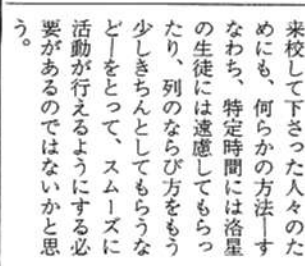 来校して下さった人々のた
めにも、何らかの方法―す
なわち、特定時間には洛星
の生徒には遠慮してもらっ
たり、列のならび方をもう
少しきちんとしてもらうな
ど―をとって、スムーズに
活動が行えるようにする必
要があるのではないかと思
う。